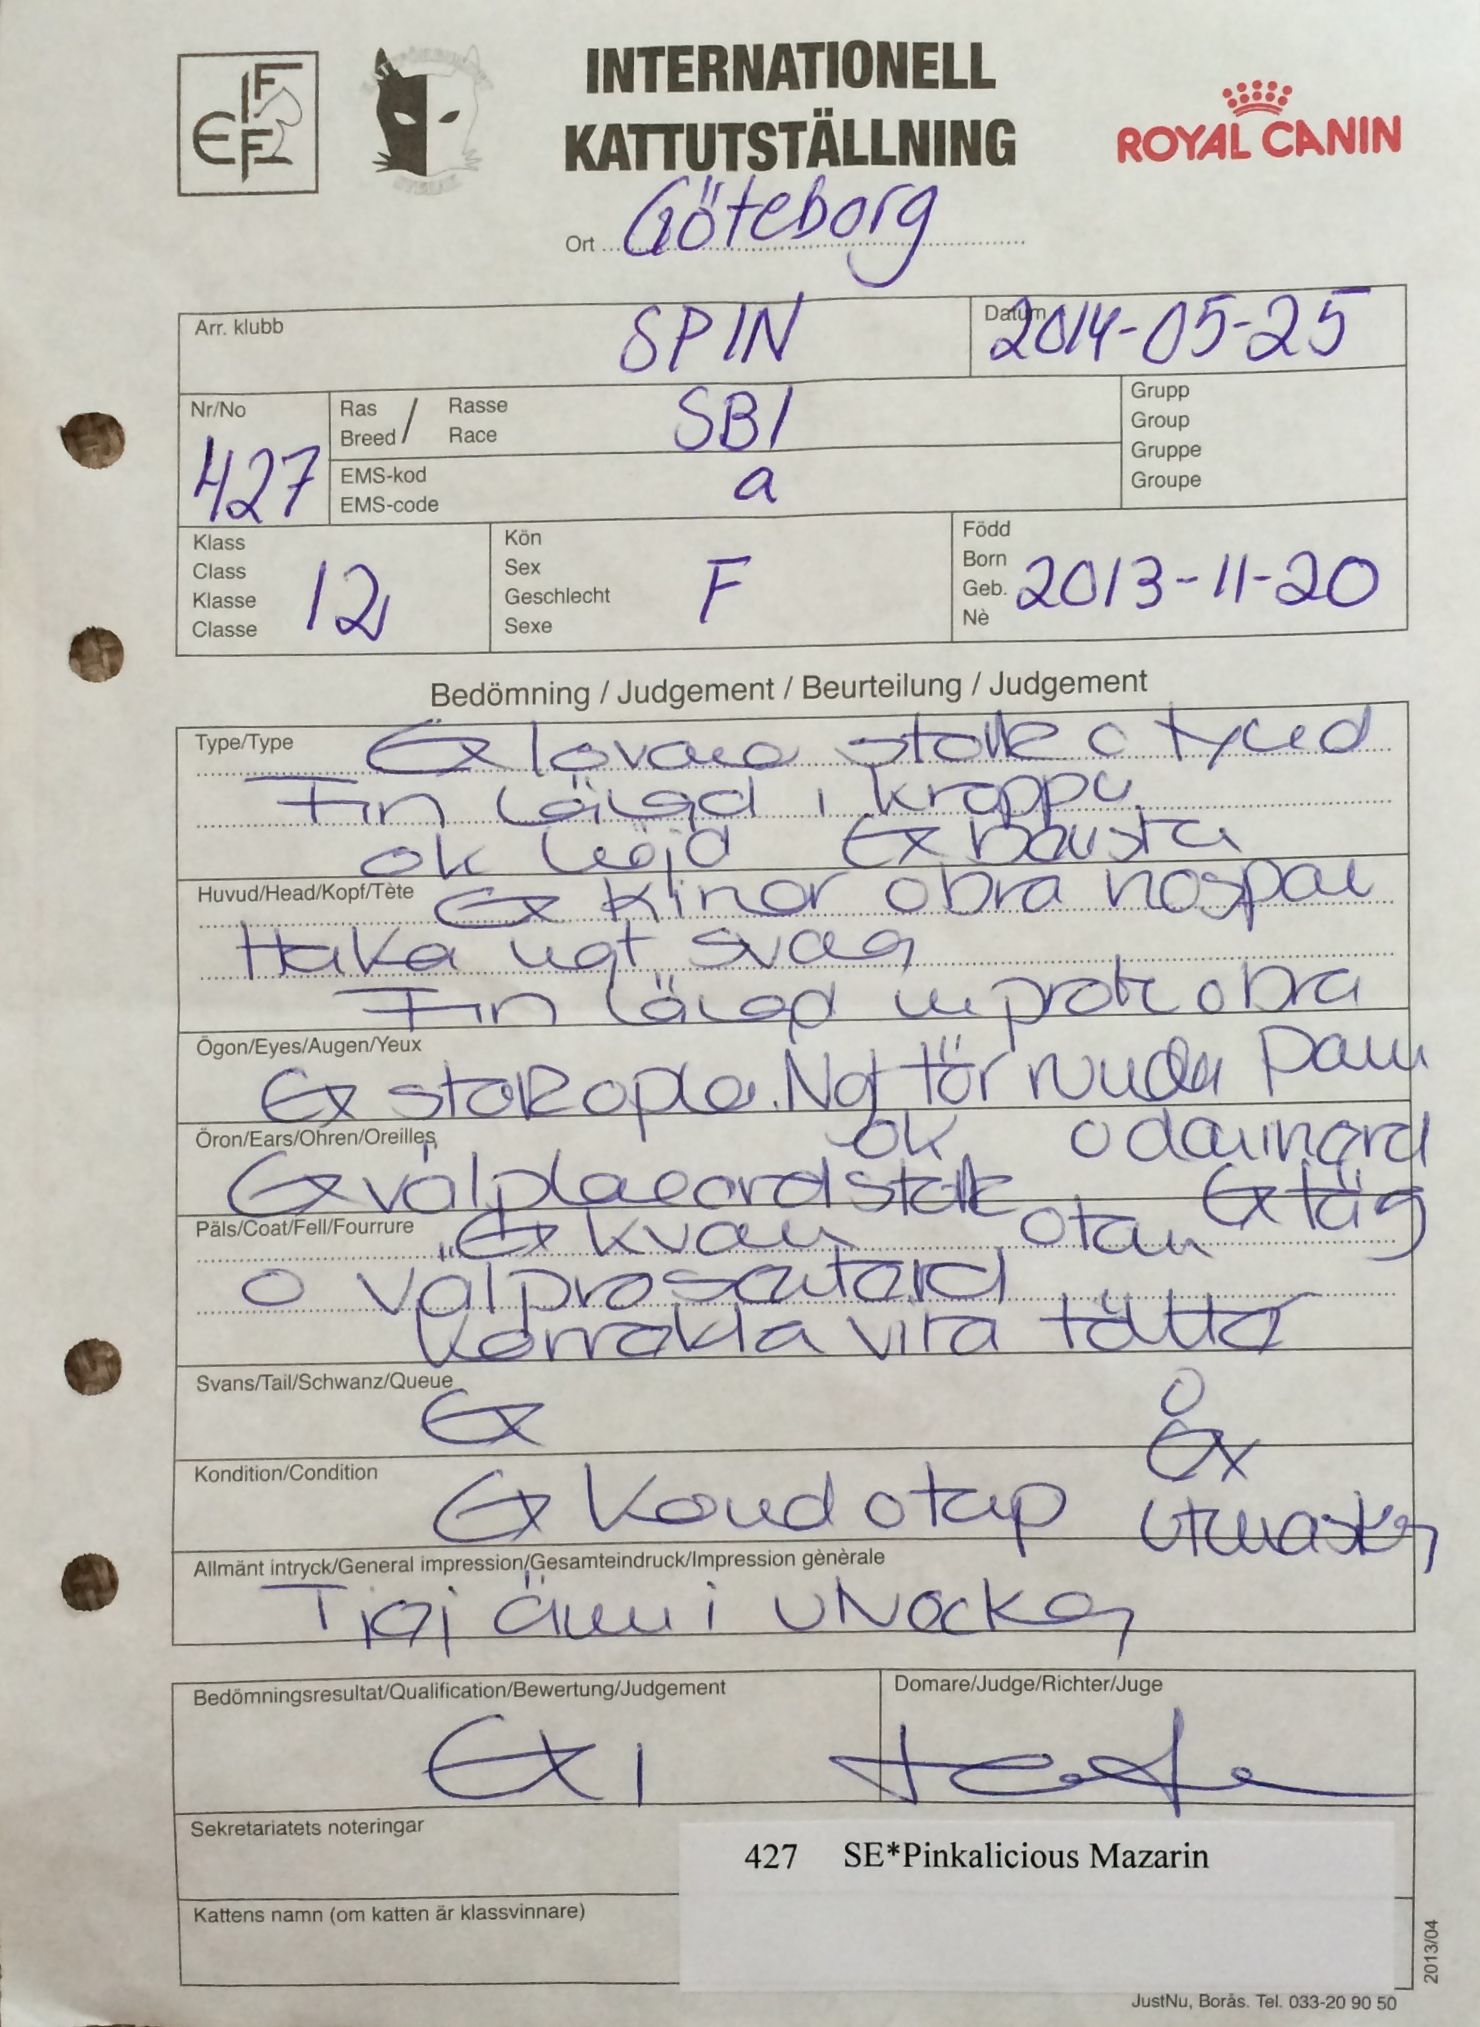 FIFe
INTERNATIONELL
KATTUTSTÄLLNING
ROYAL CANIN
Ort Göteborg
Arr. klubb SPIN
Datum 2014-05-25
Nr/No 427
Ras / Rasse
Breed / Race
SBI
EMS-kod
EMS-code
a
Grupp
Group
Gruppe
Groupe
Klass
Class
Klasse
Classe
12
Kön
Sex
Geschlecht
Sexe
F
Född
Born
Geb.
Nè
2013-11-20
Bedömning / Judgement / Beurteilung / Judgement
Type/Type Ex lovande storlek o tyngd
Fin längd i kroppen
ok höjd Ex benstn
Huvud/Head/Kopf/Tète Ex kinder o bra nosparti
Haka ngt svag
Fin längd m profil o bra
Ögon/Eyes/Augen/Yeux
Ex storlek o plac. Ngt för runda
ok
Öron/Ears/Ohren/Oreilles
Ex välplacerad storlek
Päls/Coat/Fell/Fourrure Ex kvan Ex färg
o välpresenterad otan
Korrekta vita
Svans/Tail/Schwanz/Queue
Ex
o
Ex
Kondition/Condition
Ex Kond o tap
Allmänt intryck/General impression/Gesamteindruck/Impression gènèrale
Tjej ännu i utveckling
Bedömningsresultat/Qualification/Bewertung/Judgement
Ex 1
Domare/Judge/Richter/Juge
Sekretariatets noteringar
427 SE*Pinkalicious Mazarin
Kattens namn (om katten är klassvinnare)
2013/04
JustNu, Borås. Tel. 033-20 90 50